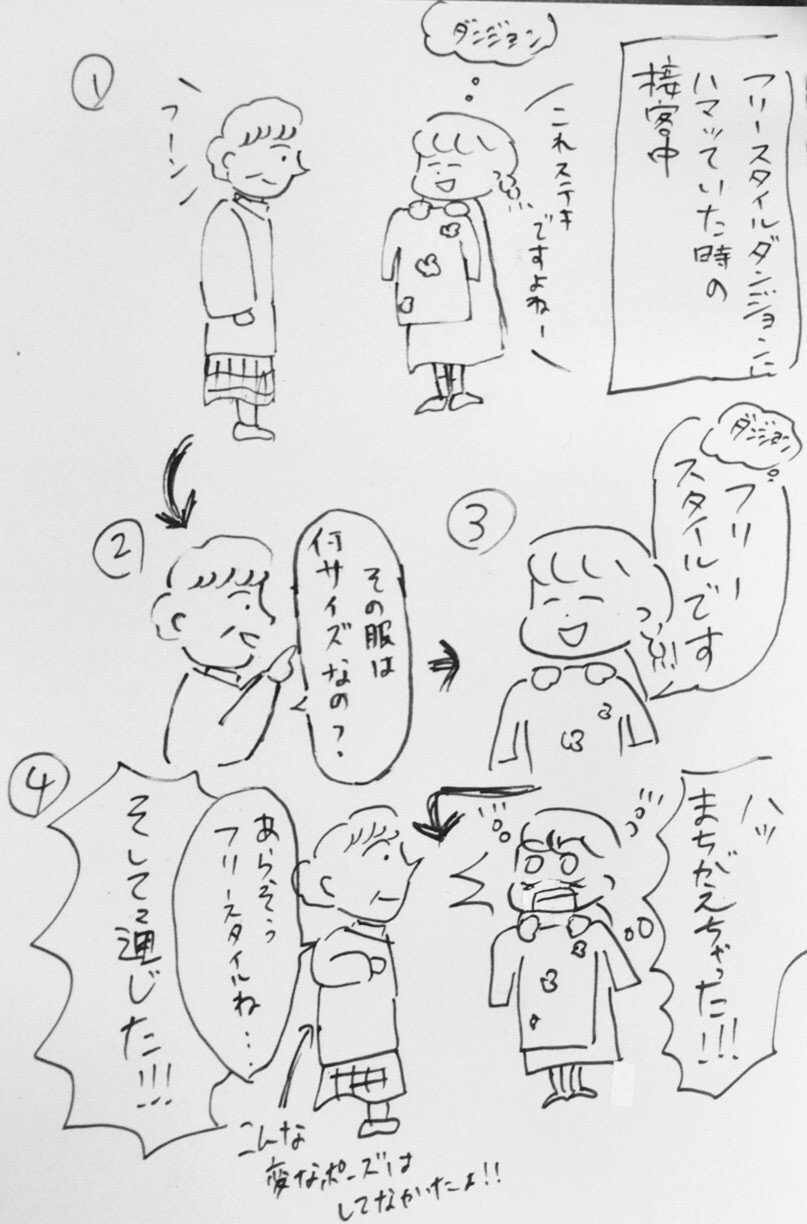 フリースタイルダンジョンに
ハマッていた時の
接客中
ダンジョン
これステキ
ですよねー
①
フーン
②
その服は
何サイズなの?
③
ダンジョン
フリー
スタイルです
ハッ
まちがえちゃった!!!
④
あらそう
フリースタイルね…
そして通じた!!!
こんな
変なポーズは
してなかったよ!!